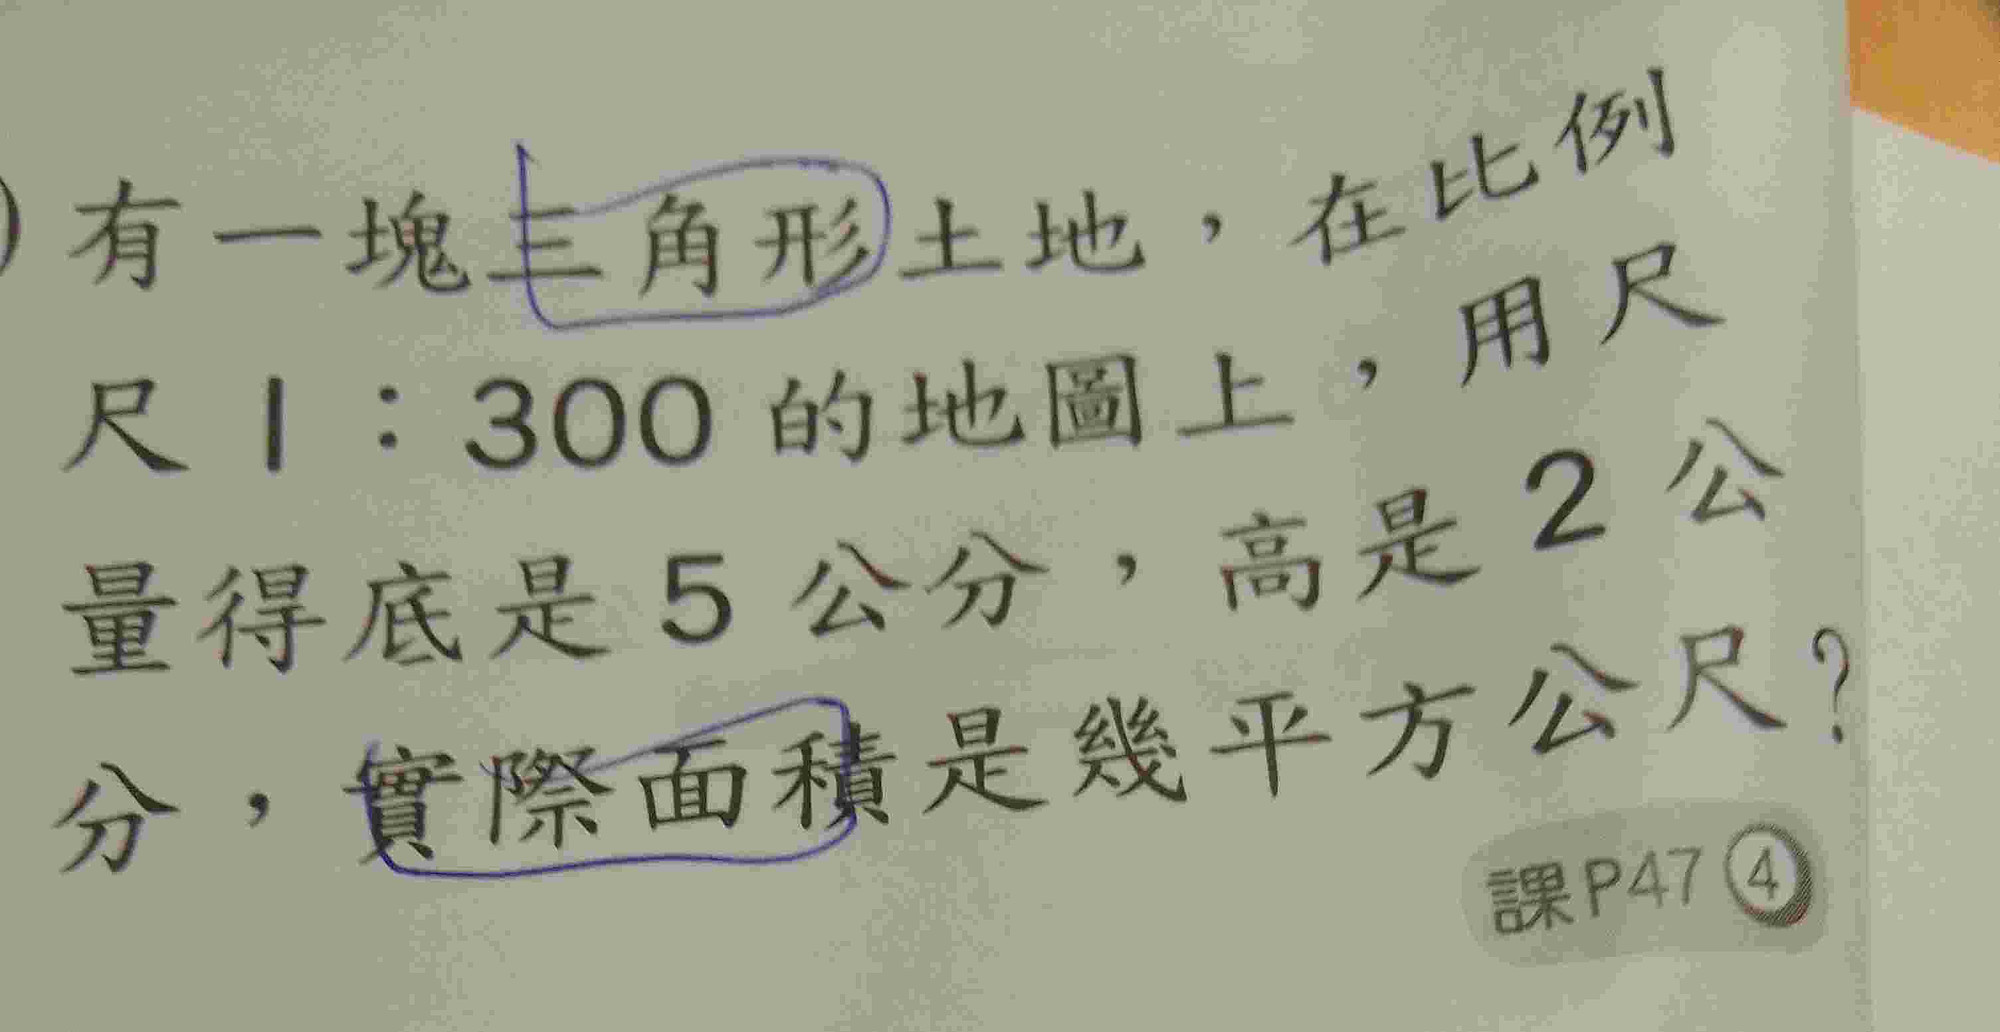 ) 有一塊三角形土地，在比例
尺 1：300 的地圖上，用尺
量得底是 5 公分，高是 2 公
分，實際面積是幾平方公尺？
課P47 ④